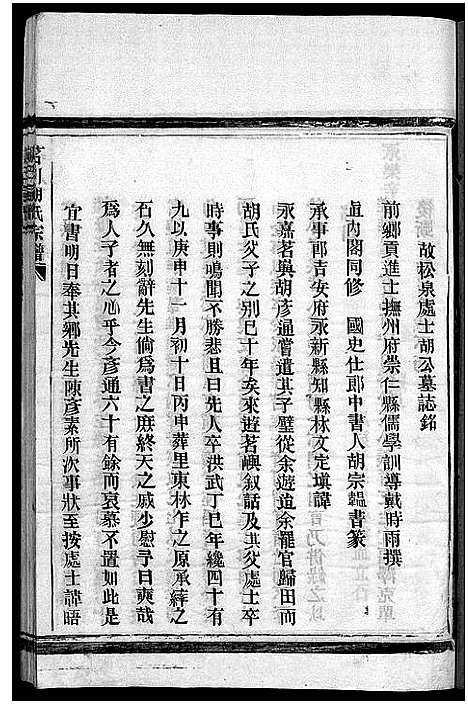 故松泉處士胡公墓誌銘
前鄉貢進士撫州府崇仁縣儒學訓導戴時雨撰
直內閣同修　國史仕郎中書人胡宗韞書篆
承事郎吉安府永新縣知縣林文定塡諱
永嘉茗與胡彥通嘗遣其子璧從余遊道余罷官歸田而
胡氏父子之別巳十年矣來遊茗嶼叙話及其父處士卒
時事則鳴聞不勝悲且曰先人卒洪武丁巳年纔四十有
九以庚申十一月初十日丙申葬里東林乍之原承薛之
石久無刻辭先生倘爲書之庶終天之戚少慰予曰奭哉
爲人子者之心乎今彥通六十有餘而哀慕不置如此是
宜書明日奉其鄉先生陳彥素所次事狀至按處士諱晤
胡氏宗譜